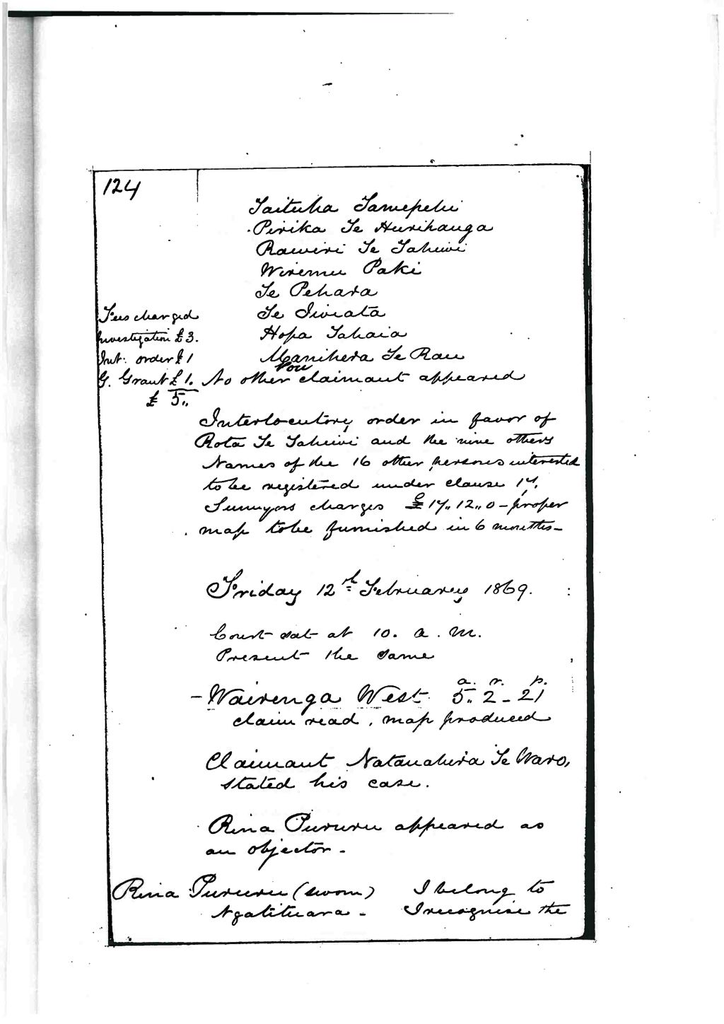 124
Taituha Tamepehi
Pirika Te Hurihanga
Rawiri Te Tahiwi
Wiremu Paki
Te Pehara
Te Iwiata
Hopa Tahaia
Manihera Te Rau
Fees charged
Investigation £3.
Int. order £1
G. Grant £1.
£ 5.,
No other claimant appeared
Interlocutory order in favor of
Rota Te Tahiwi and the nine others
Names of the 16 other persons interested
to be registered under clause 17.
Surveyors charges £17.12.,0 – proper
map to be furnished in 6 months –
Friday 12th February 1869.
Court sat at 10. a.m.
Present the same
– Wairenga West a. 5. r. 2 – p. 21
claim read, map produced
Claimant Natanahira Te Waro,
stated his case.
Rina Pururu appeared as
an objector –
Rina Pururu (sworn) I belong to
Ngatituara – I recognise the